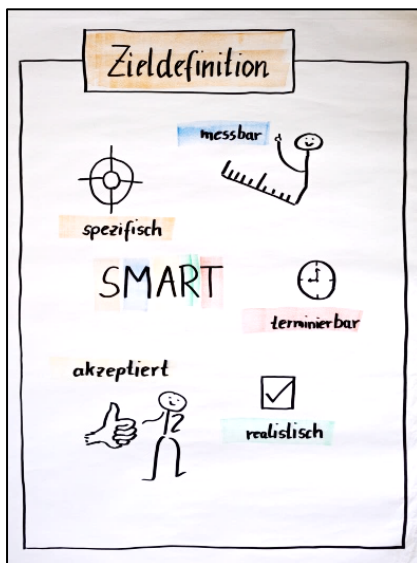 Zieldefinition
messbar
spezifisch
SMART
terminierbar
akzeptiert
realistisch